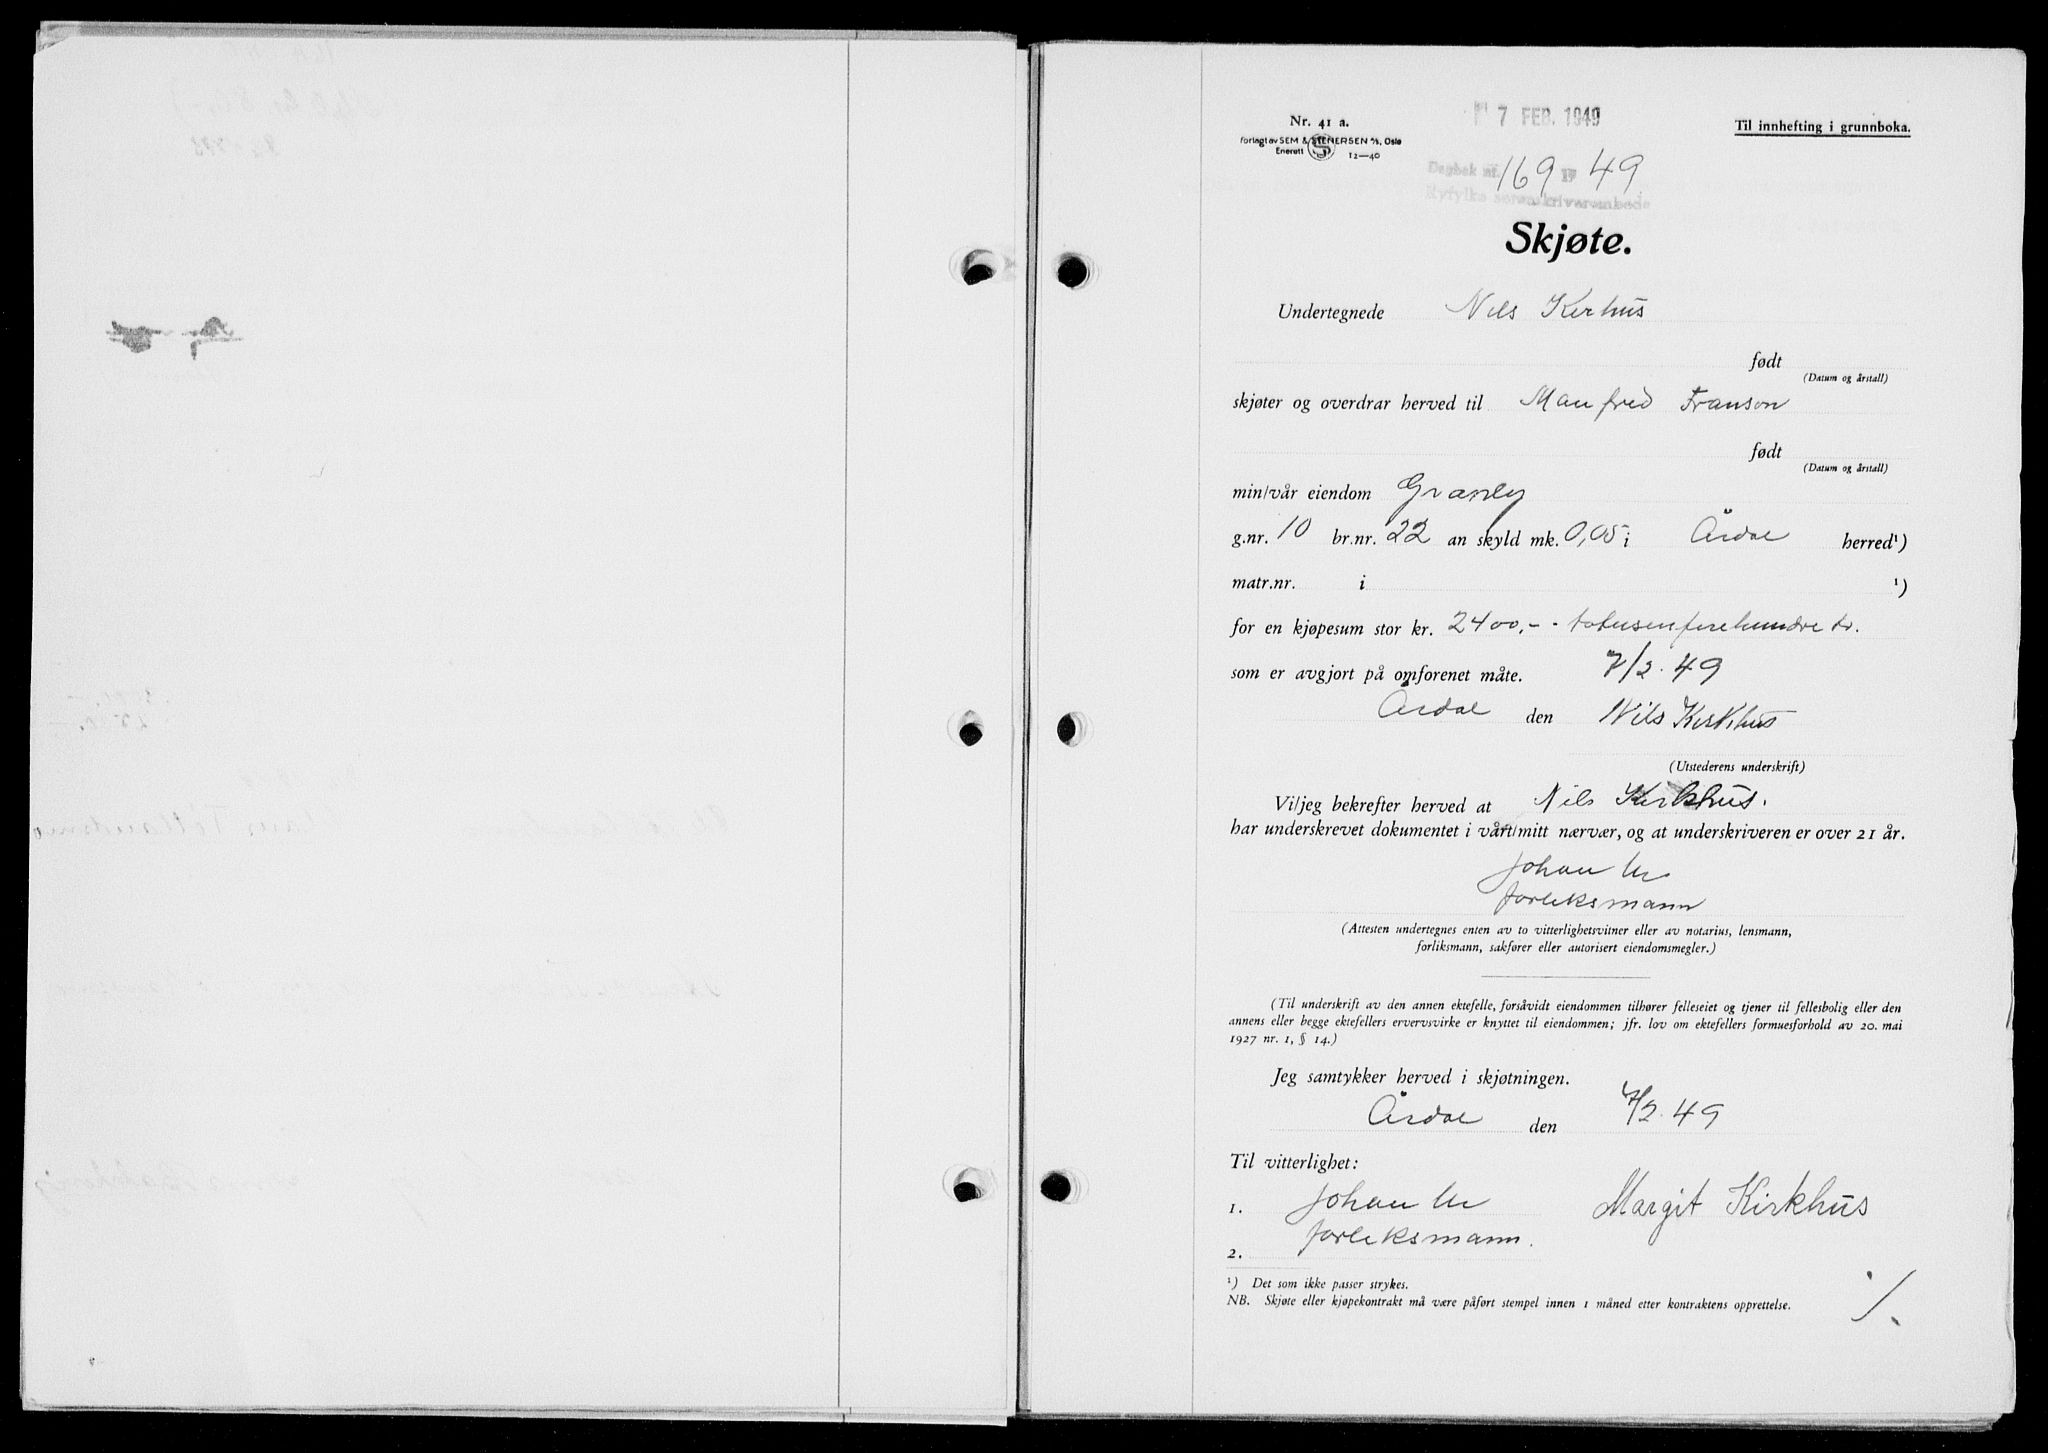 Nr. 41 a.
Forlagt av SEM & STENERSEN A/S, Oslo
Enerett
S
12—40
7 FEB. 1949
Til innhefting i grunnboka.
Dagbok nr. 169 49
Ryfylke sorenskriverembede
Skjøte.
Undertegnede Nils Kirhus
født
(Datum og årstall)
skjøter og overdrar herved til Manfred Franson
født
(Datum og årstall)
min/vår eiendom Granly
g.nr. 10 br.nr. 22 an skyld mk. 0,05 i Årdal herred¹)
matr.nr. i ¹)
for en kjøpesum stor kr. 2400,- - totusenfirehundre kr.
som er avgjort på omforenet måte. 7/2. 49
Årdal den Nils Kirkhus
(Utstederens underskrift)
Vi/jeg bekrefter herved at Nils Kirkhus.
har underskrevet dokumentet i vårt/mitt nærvær, og at underskriveren er over 21 år.
Johan Ur
forliksmann
(Attesten undertegnes enten av to vitterlighetsvitner eller av notarius, lensmann,
forliksmann, sakfører eller autorisert eiendomsmegler.)
(Til underskrift av den annen ektefelle, forsåvidt eiendommen tilhører felleseiet og tjener til fellesbolig eller den
annens eller begge ektefellers ervervsvirke er knyttet til eiendommen; jfr. lov om ektefellers formuesforhold av 20. mai
1927 nr. 1, § 14.)
Jeg samtykker herved i skjøtningen.
Årdal den 7/2. 49
Til vitterlighet:
1. Johan Ur Margit Kirkhus
2. forliksmann.
¹) Det som ikke passer strykes.
NB. Skjøte eller kjøpekontrakt må være påført stempel innen 1 måned etter kontraktens opprettelse.